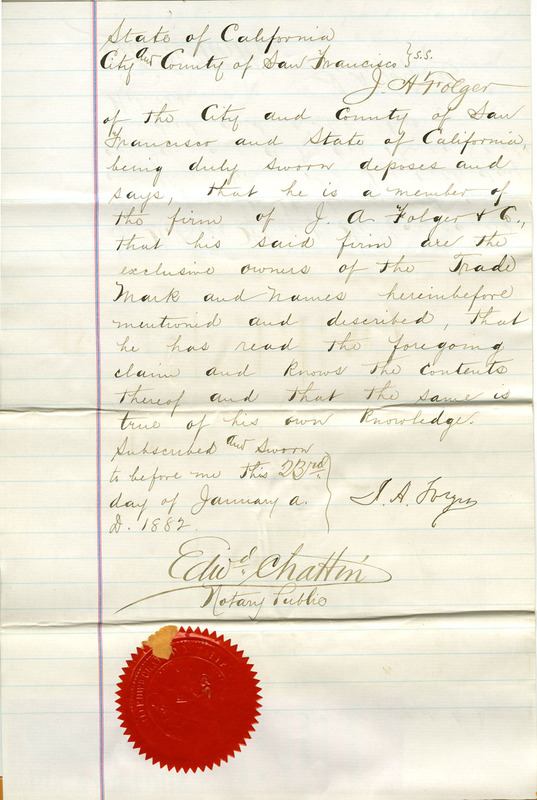 State of California
City and County of San Francisco } S.S.
J. A Folger
of the City and County of San
Francisco and State of California,
being duly sworn deposes and
says, that he is a member of
the firm of J. A. Folger & Co.,
that his said firm are the
exclusive owners of the Trade
Mark and Names hereinbefore
mentioned and described, that
he has read the foregoing
claim and knows the contents
thereof and that the same is
true of his own knowledge.
Subscribed and Sworn
to before me this 23rd
day of January A.
D. 1882.
J. A. Folger
Edwd. Chattin
Notary Public